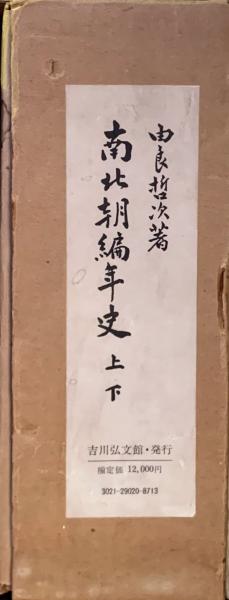 由良哲次著
南北朝編年史 上下
吉川弘文館・発行
検定価 12,000円
3021-29020-8713